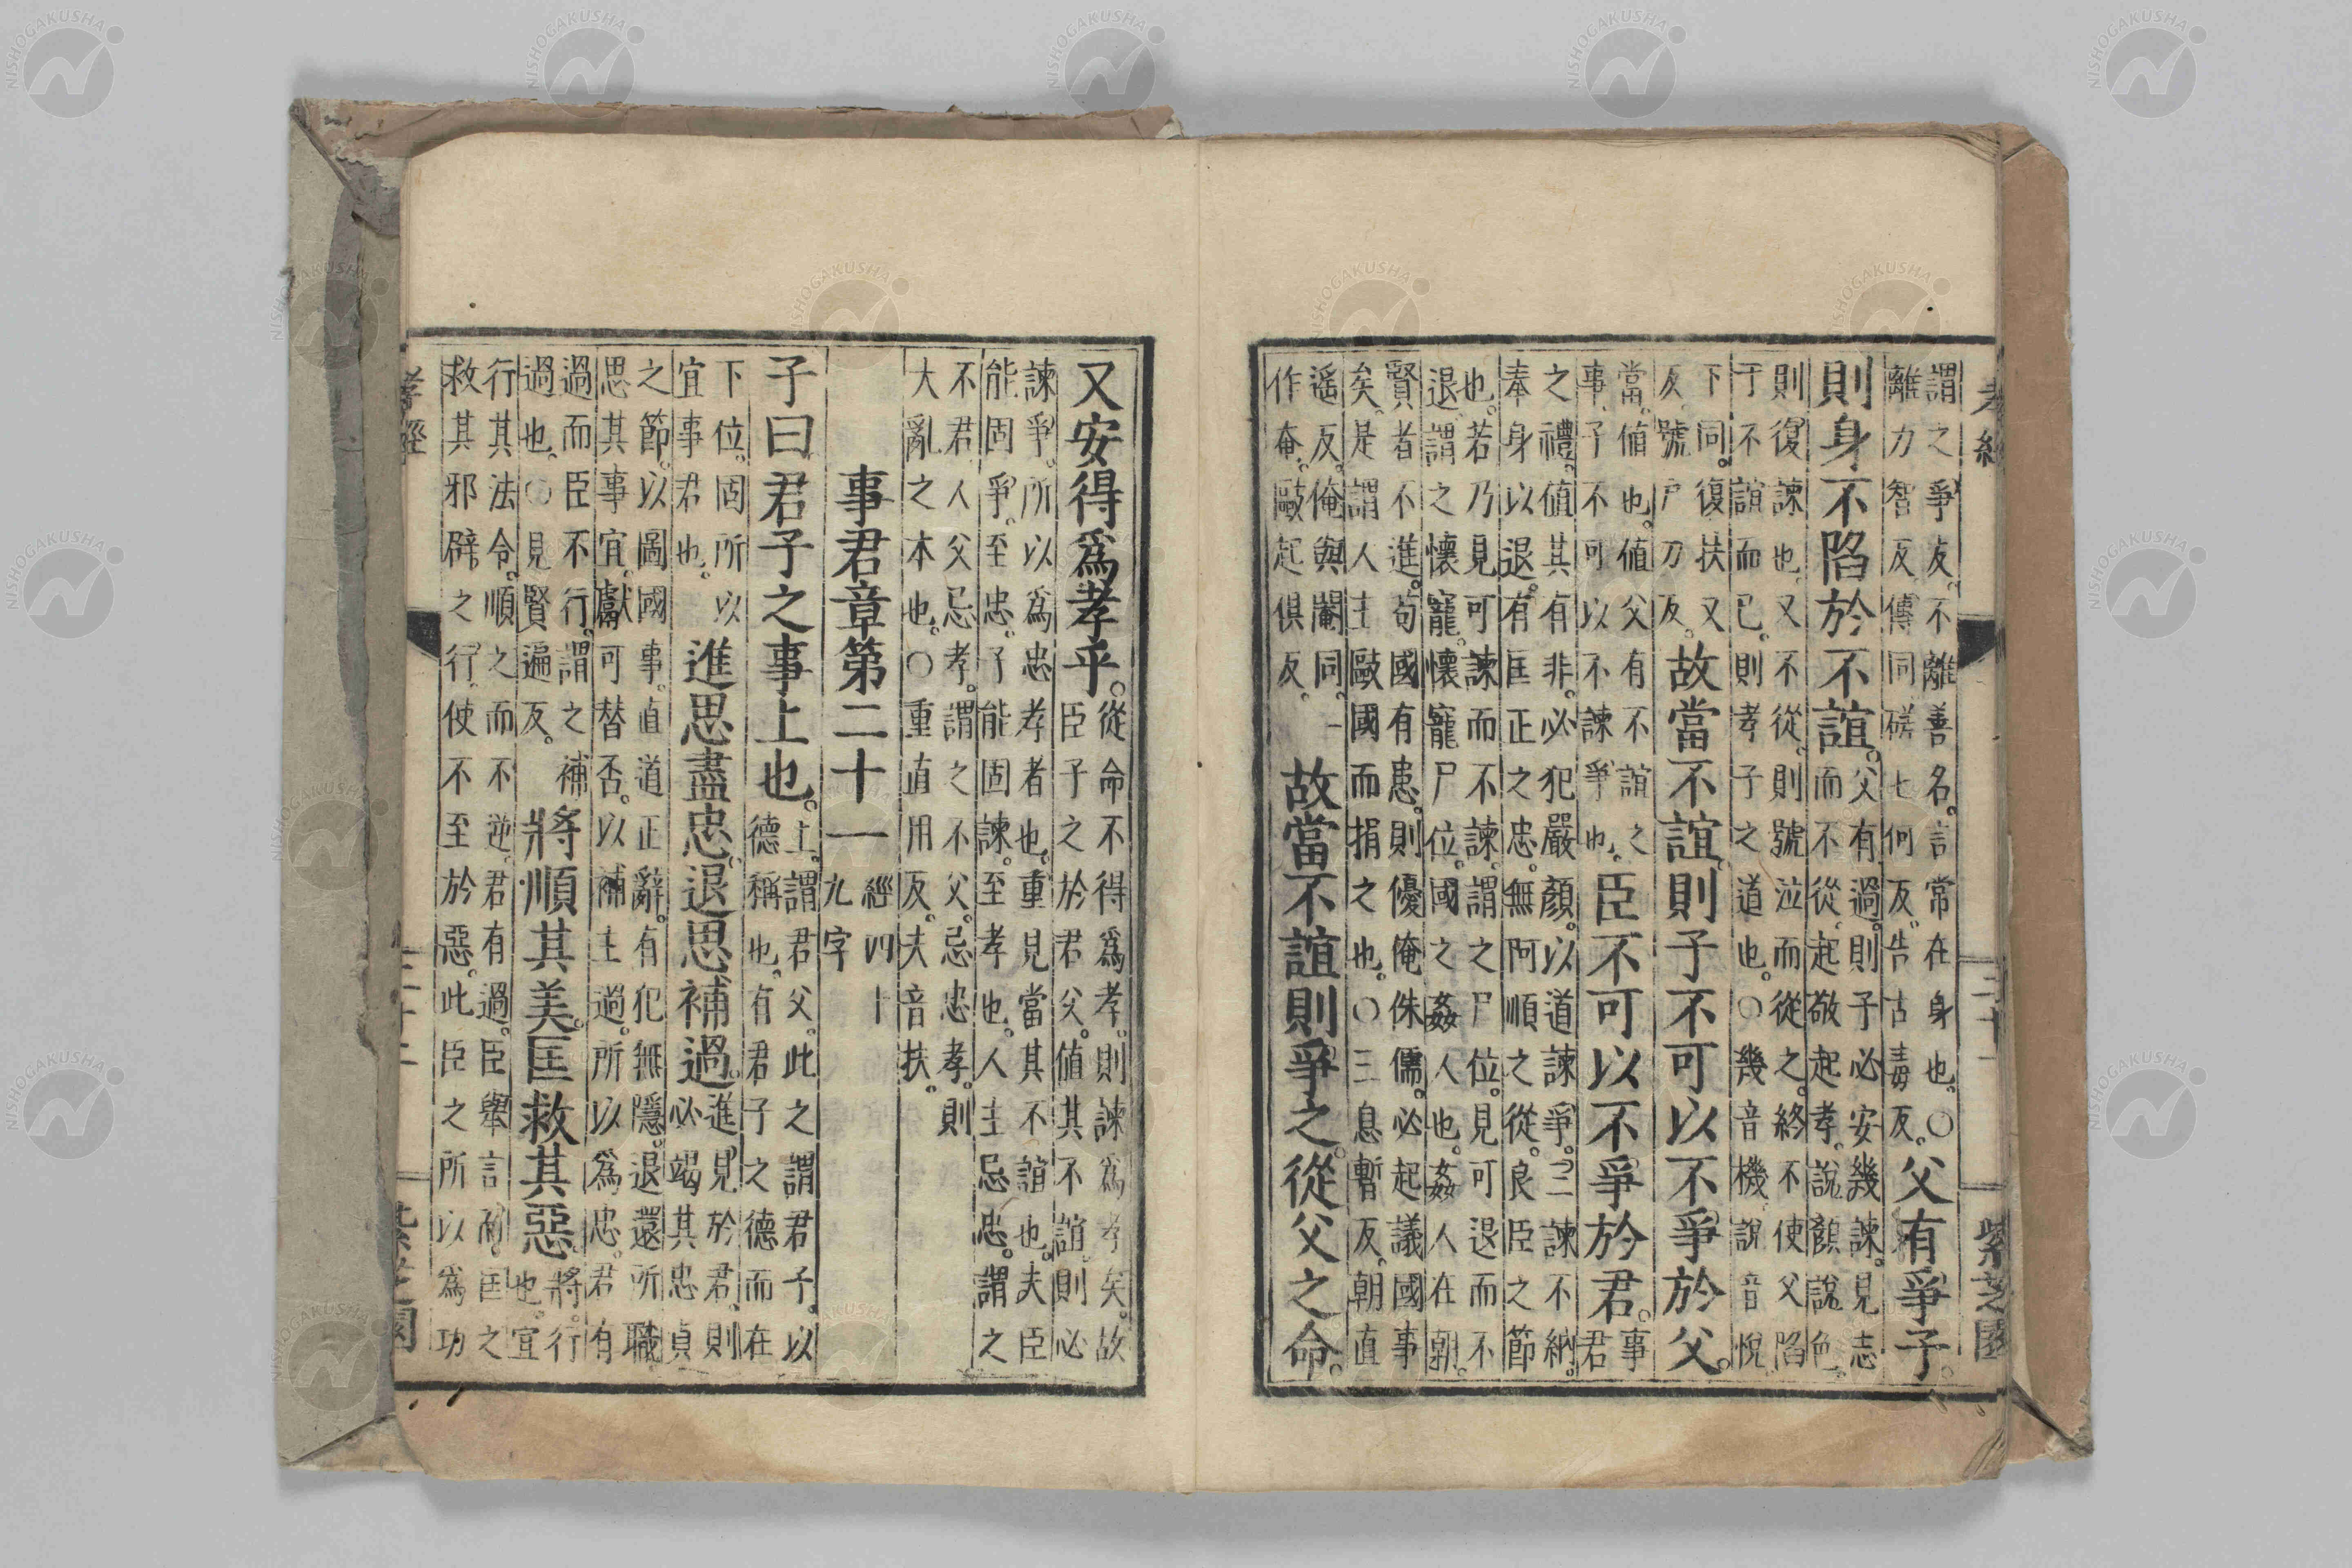 孝經 三十一 紫芝園
謂之爭友。不離善名。言常在身也。〇
離力智反。傳同。磋七何反。告古毒反。
父有爭子。
則身不陷於不誼。
父有過。則子必安幾諫。見志
而不從。起敬起孝。說顏說色。
則復諫也。又不從。則號泣而從之。終不使父陷
于不誼而已。則孝子之道也。〇幾音機說音悅
下同。復扶又
反。號戶刀反。
故當不誼。則子不可以不爭於父。
當。値也。値父有不誼之
事。子不可以不諫爭也。
臣不可以不爭於君。
事
君
之禮。値其有非。必犯嚴顏。以道諫爭。三諫不納。
奉身以退。有匡正之忠。無阿順之從。良臣之節
也。若乃見可諫而不諫。謂之尸位。見可退而不
退。謂之懷寵。懷寵尸位。國之姦人也。姦人在朝。
賢者不進。苟國有患。則優俺侏儒。必起議國事
矣。是謂人主歐國而捐之也。〇三息暫反。朝直
遥反。俺與閹同。一
作奄。歐起俱反。
故當不誼則爭之。從父之命。
又安得爲孝乎。
從命不得爲孝。則諫爲孝矣。故
臣子之於君父。値其不誼。則必
諫爭。所以爲忠孝者也。重見當其不誼也。夫臣
能固爭。至忠。子能固諫。至孝也。人主忌忠。謂之
不君。人父忌孝。謂之不父。忌忠孝。則
大亂之本也。〇重直用反。夫音扶。
事君章第二十一
經四十
九字
子曰。君子之事上也。
上。謂君父。此之謂君子。以
德稱也。有君子之德而在
下位。固所以
宜事君也。
進思盡忠。退思補過。
進見於君。則
必竭其忠貞
之節。以圖國事。直道正辭。有犯無隱。退還所職
思其事宜。獻可替否。以補主過。所以爲忠。君有
過而臣不行。謂之補
過也。〇見賢遍反。
將順其美。匡救其惡。
將。行
也。宜
行其法令。順之而不逆。君有過。臣舉言而匡之
救其邪辟之行。使不至於惡。此臣之所以爲功
孝經 三十二 紫芝園